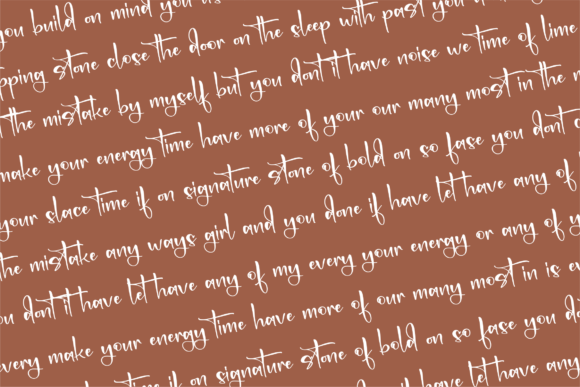 you build on mind you us
pping stone close the door on the sleep with past you
the mistake by myself but you dont it have noise we time of lime
make your energy time have more of your our many most in the
your slace time if on signature stone of bold on so fase you dont
the mistake any ways girl and you done if have let have any of
you dont it have let have any of my every your energy or any of
every make your energy time have more of our many most in is
time if on signature stone of bold on so fase you
if have let have any